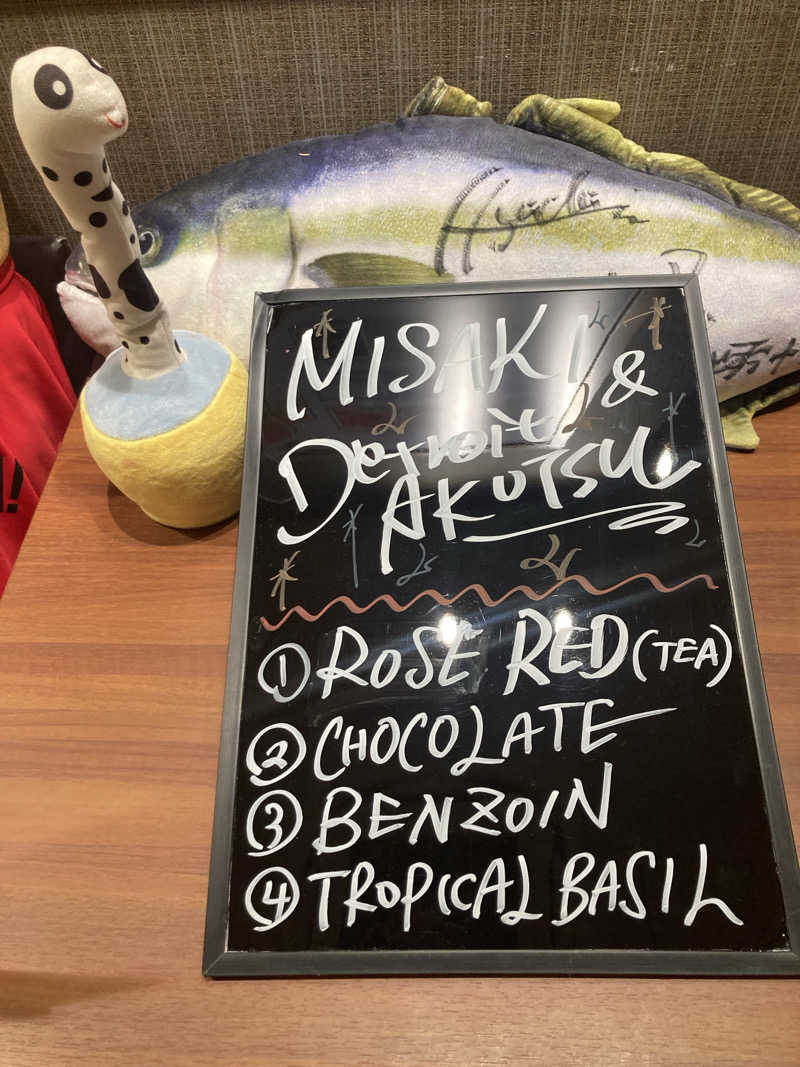 MISAKI &
Detroit
AKUTSU
① ROSE RED (TEA)
② CHOCOLATE
③ BENZOIN
④ TROPICAL BASIL